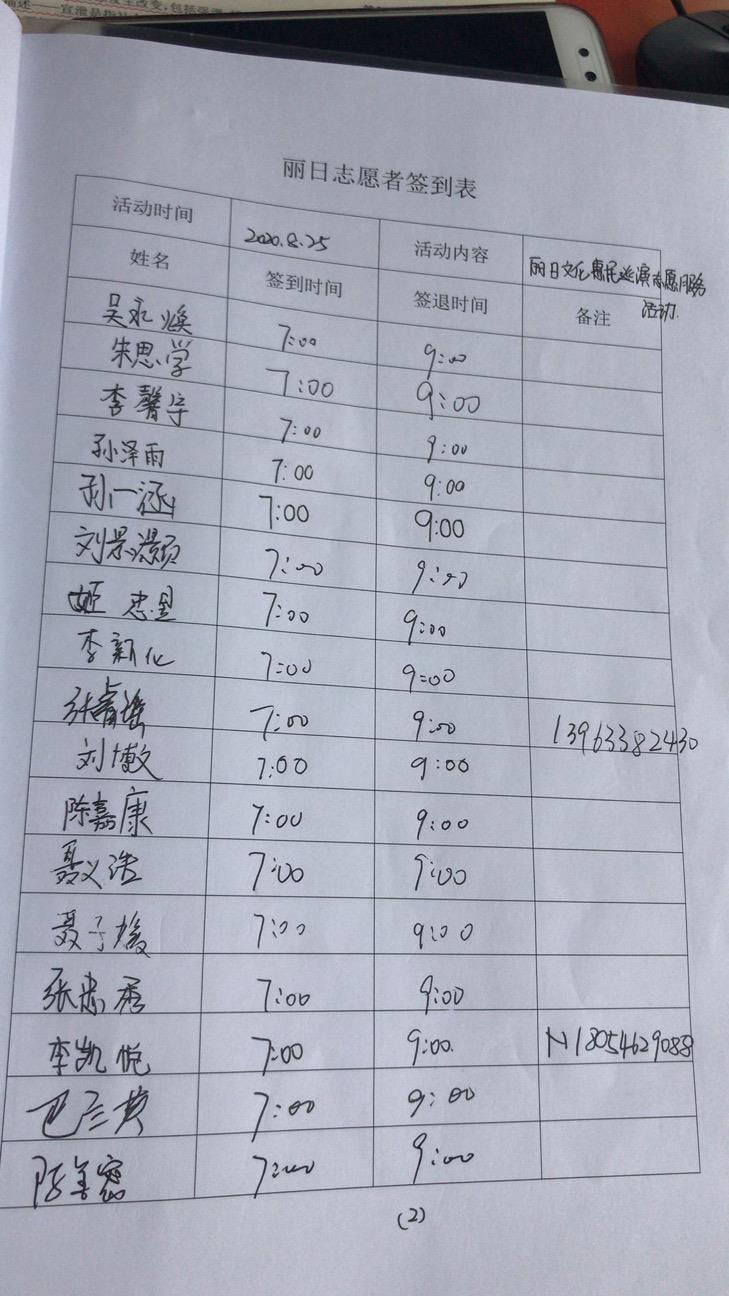 宣泄是指
丽日志愿者签到表
活动时间 2020.8.25 活动内容 丽日文化惠民巡演志愿服务活动
姓名 签到时间 签退时间 备注
吴永焕 7:00 9:00
朱思学 7:00 9:00
李馨宇 7:00 9:00
孙泽雨 7:00 9:00
孙一涵 7:00 9:00
刘景灏 7:00 9:00
姬忠 7:00 9:00
李新化 7:00 9:00
张睿瑶 7:00 9:00 13963382430
刘敏 7:00 9:00
陈嘉康 7:00 9:00
聂义浩 7:00 9:00
聂子媛 7:00 9:00
张忠秀 7:00 9:00
李凯悦 7:00 9:00. 18054629088
7:00 9:00
陈善 7:00 9:00
(2)